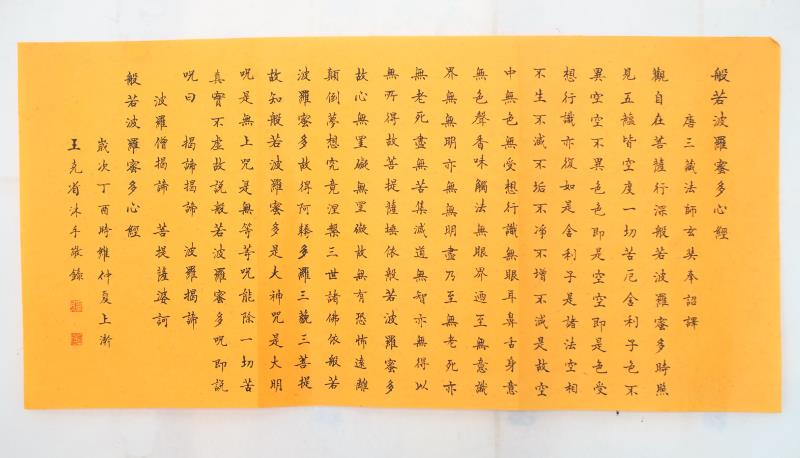 般若波羅蜜多心經
唐三藏法師玄奘奉詔譯
觀自在菩薩行深般若波羅蜜多時照
見五蘊皆空度一切苦厄舍利子色不
異空空不異色色即是空空即是色受
想行識亦復如是舍利子是諸法空相
不生不滅不垢不淨不增不減是故空
中無色無受想行識無眼耳鼻舌身意
無色聲香味觸法無眼界迺至無意識
界無無明亦無無明盡乃至無老死亦
無老死盡無苦集滅道無智亦無得以
無所得故菩提薩埵依般若波羅蜜多
故心無罣礙無罣礙故無有恐怖遠離
顛倒夢想究竟涅槃三世諸佛依般若
波羅蜜多故得阿耨多羅三藐三菩提
故知般若波羅蜜多是大神咒是大明
咒是無上咒是無等等咒能除一切苦
真實不虛故說般若波羅蜜多咒即說
咒曰 揭諦揭諦 波羅揭諦
波羅僧揭諦 菩提薩婆訶
般若波羅蜜多心經
歲次丁酉時維仲夏上澣
王克省沐手敬錄